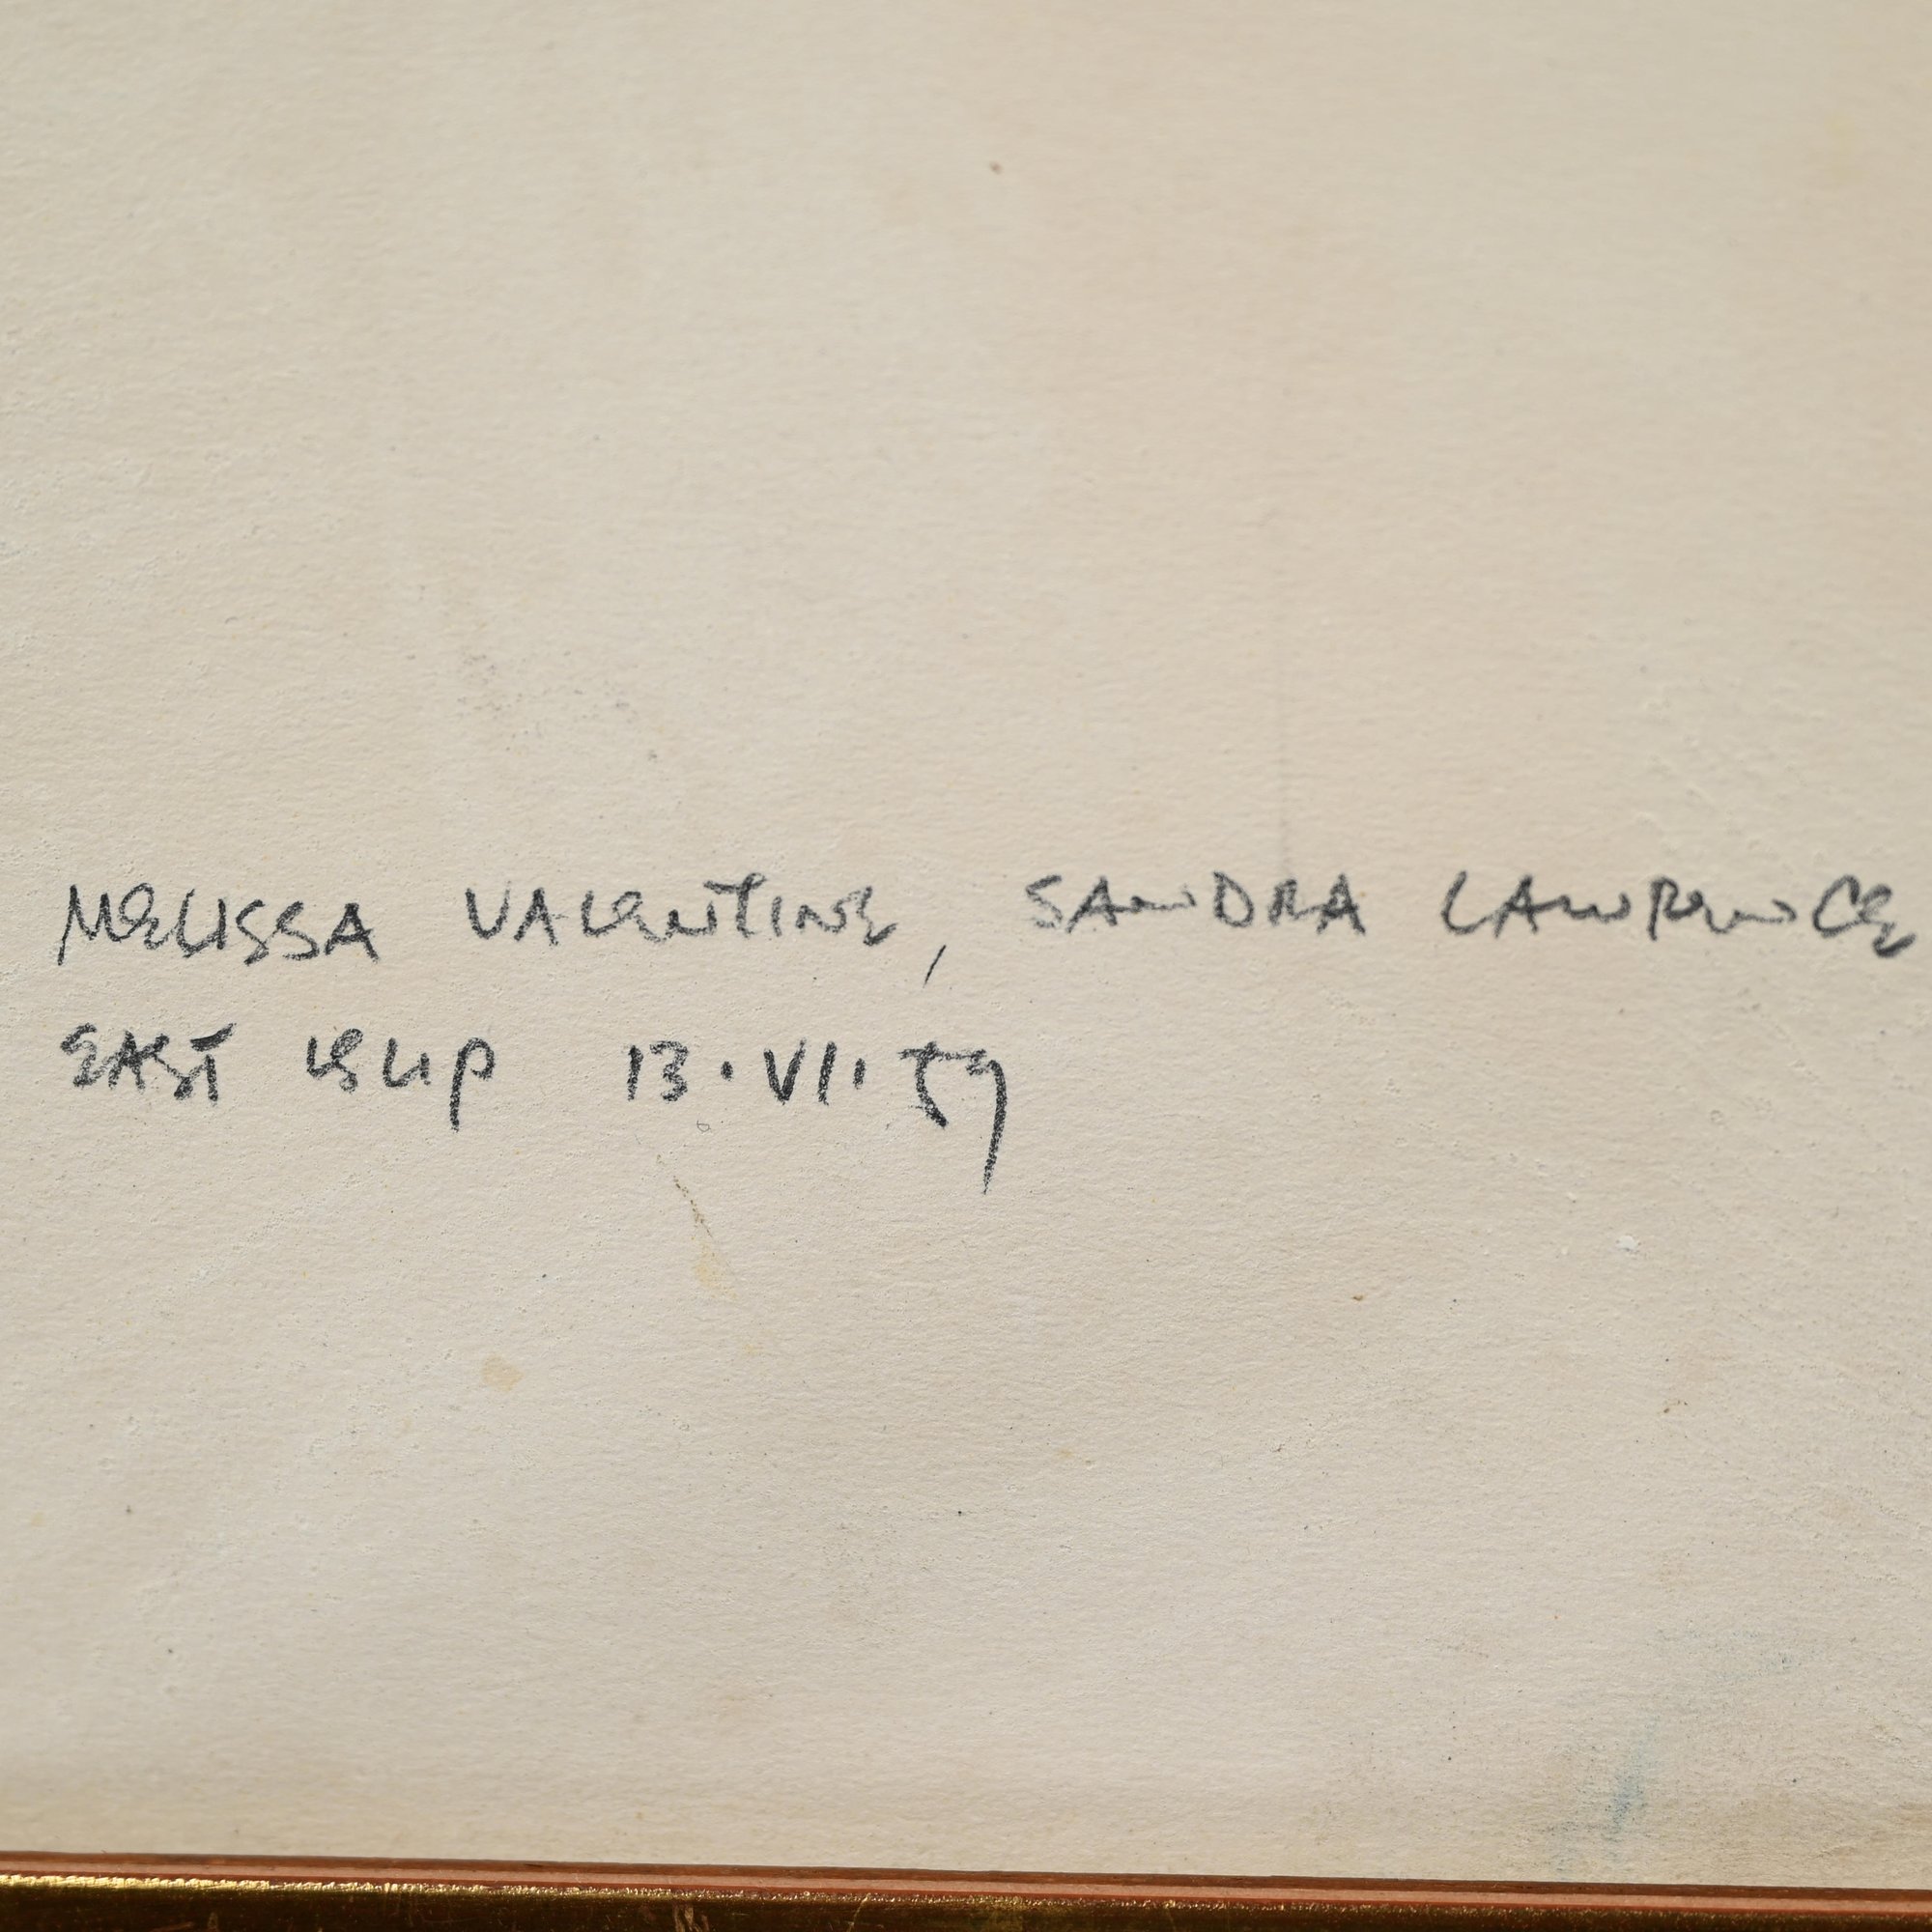 MELISSA VALENTINE, SANDRA LAWRENCE
EAST ISLIP 13·VI·59